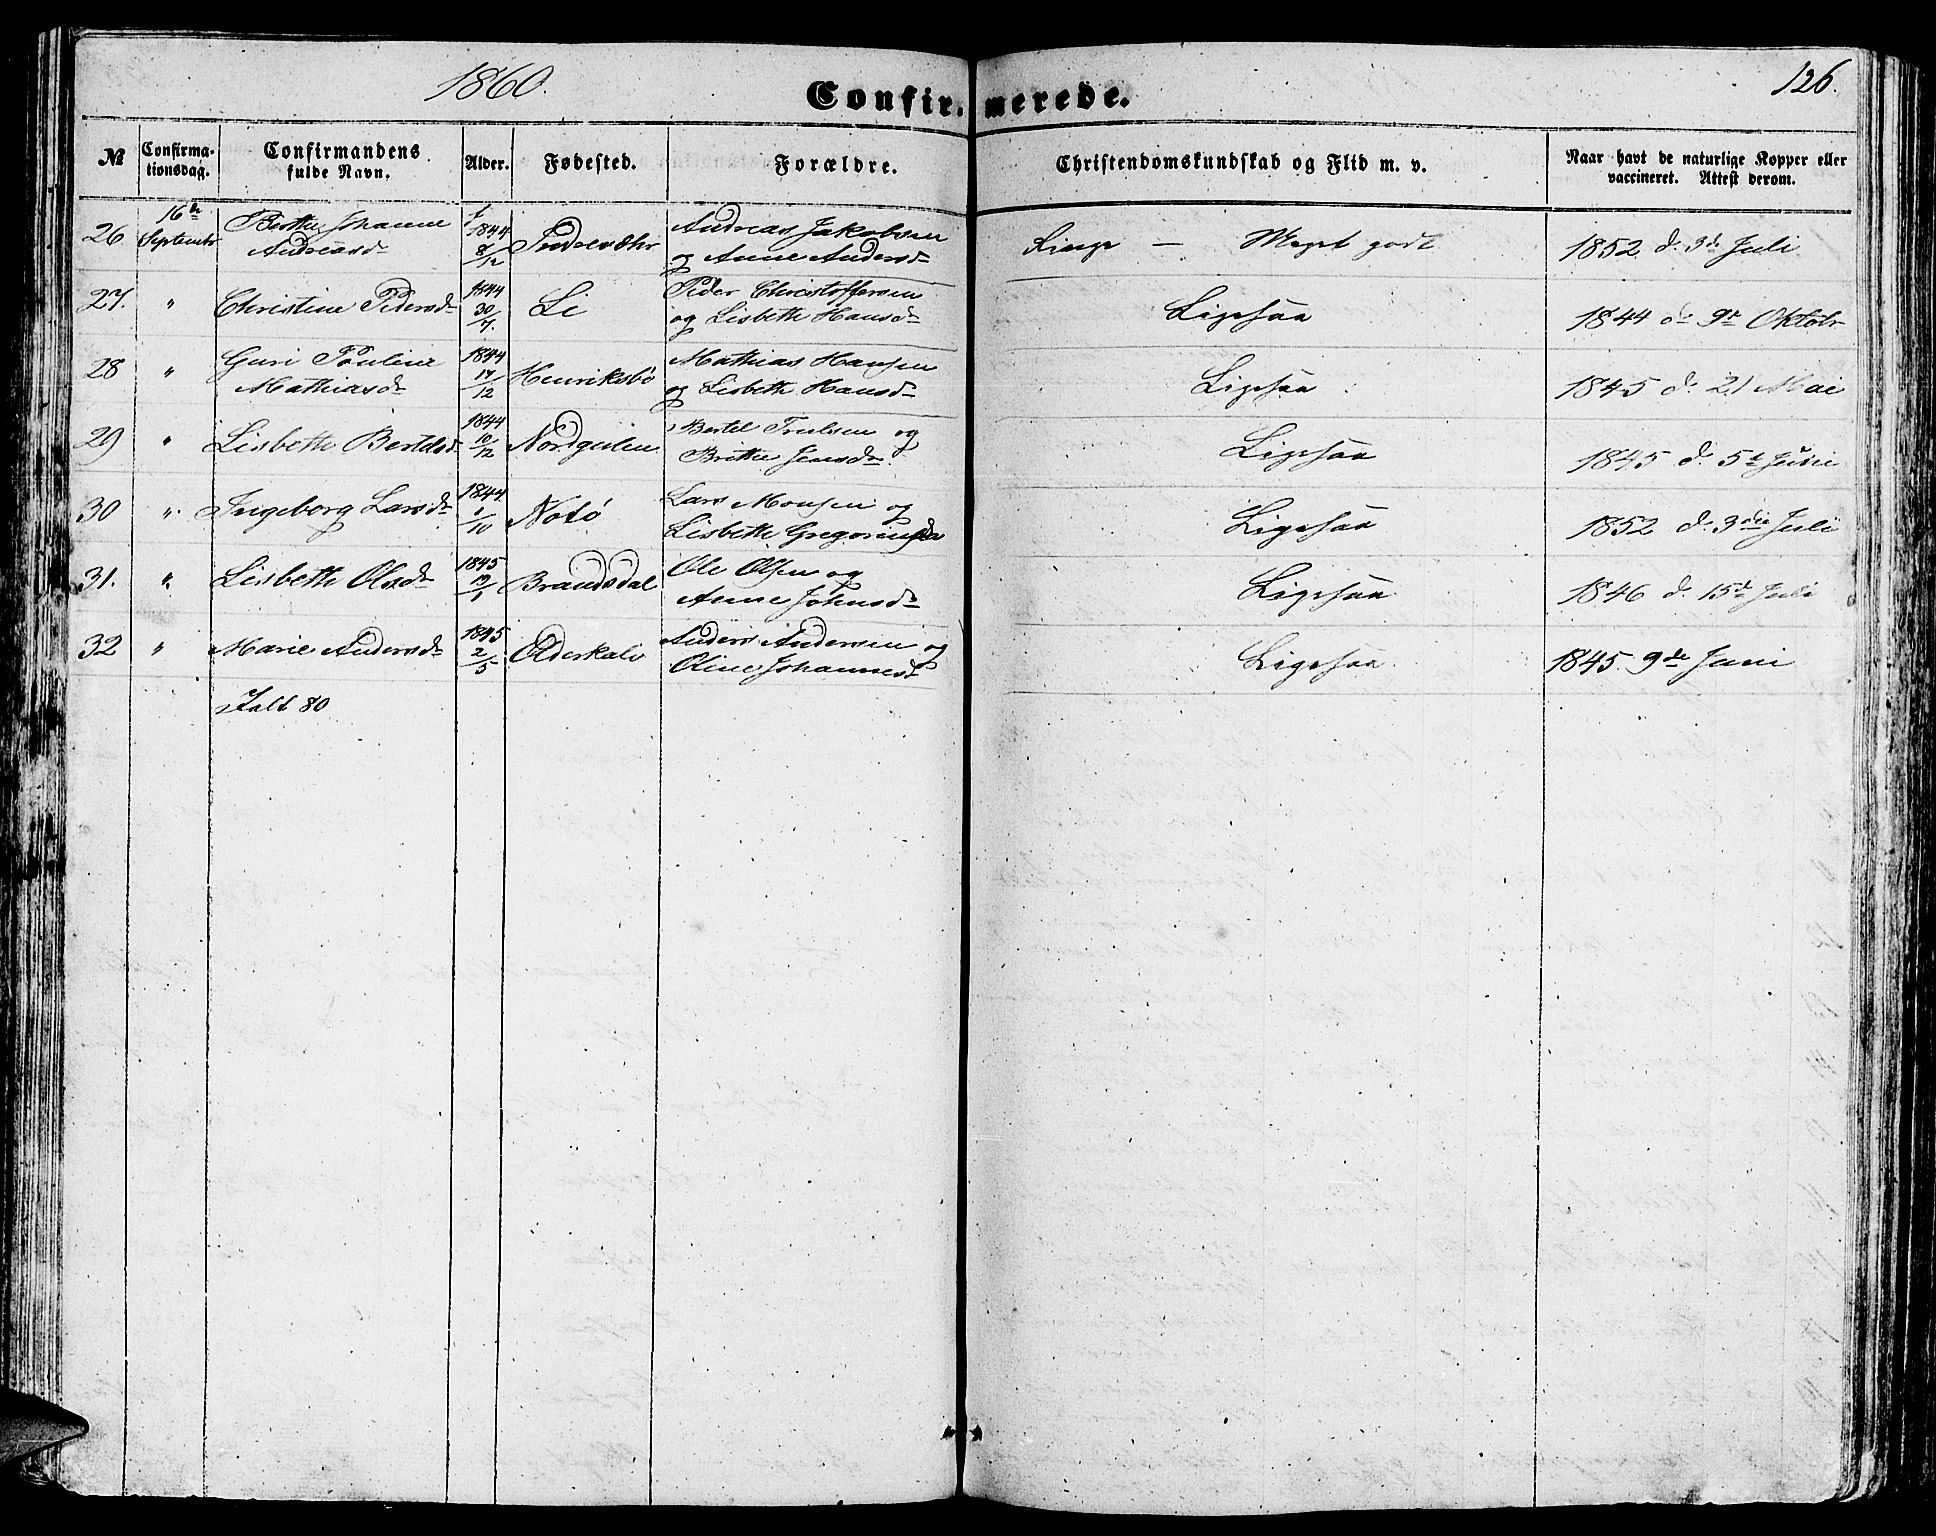 1860.
Confirmerede.
126.
№ Confirmationsdag. Confirmandens fulde Navn. Alder. Fødested. Forældre. Christendomskundskab og Flid m. v. Naar havt de naturlige Kopper eller vaccineret. Attest derom.
26 16de Septembr Berthe Johanne Andreasdr f 1844 8/12 Andreas Jakobsen og Anne Andersdr Meget godt 1852 d. 3de Juli
27. " Christine Pedersdr 1844 30/7. Li Peder Christoffersen og Lisbeth Hansdr Ligesaa 1844 d. 9de Oktobr
28 " Guri Pouline Mathiasdr 1844 17/12 Henriksbö Mathias Hansen og Lisbeth Hansdr Ligesaa 1845 d. 21 Mai
29 " Lisbeth Bertelsd 1844 10/12 Nordgulen Bertel Trulsen og Brithe Jensdr. Ligesaa 1845 d. 5te Juni
30 " Ingeborg Larsdr 1844. 1/10 Notö Lars Monsen og Lisbeth Gregoriusdr Ligesaa 1852 d. 3die Juli
31. " Lisbeth Olsdr 1845 19/1 Brandsdal Ole Olsen og Anne Johnsdr Ligesaa 1846 d. 15de Juli
32 " Marie Andersdr 1845 2/5 Olderkalv Anders Andersen og Oline Johannesdr Ligesaa 1845 9de Juni
Ialt 80